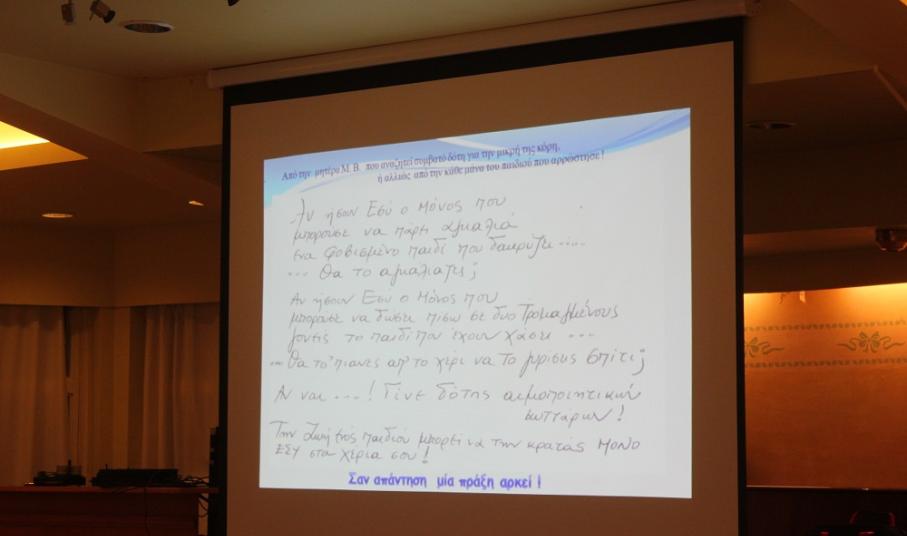 Από την μητέρα Μ. Β. που αναζητεί συμβατό δότη για την μικρή της κόρη,
ή αλλιώς από την κάθε μάνα του παιδιού που αρρώστησε !
Αν ήσουν Εσύ ο Μόνος που
μπορούσε να πάρει αγκαλιά
ένα φοβισμένο παιδί που δακρύζει ....
... Θα το αγκαλιαζες ;
Αν ήσουν Εσυ ο Μόνος που
μπορουσε να δώσει πίσω σε δυο Τρομαγμένους
γονεις το παιδί που έχουν χάσει ...
... Θα το πιανες απ' το χέρι να Το γυρίσεις Σπίτι ;
Αν ναι ... ! Γίνε δότης αιμοποιητικών
κυττάρων !
Την Ζωή ενός παιδιού μπορεί να την κρατάς ΜΟΝΟ
ΕΣΥ στα χέρια σου !
Σαν απάντηση μία πράξη αρκεί !